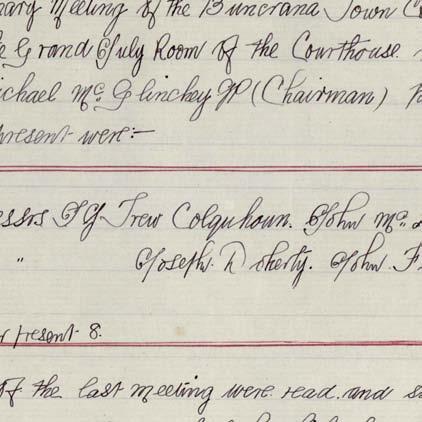 nary Meeting of the Buncrana Town Co
e Grand July Room of the Courthouse.
ichael Mc Glinchey JP (Chairman)
present were:—
essrs T G Trew Colquhoun. John Mc
" Joseph. Doherty. John. F
r present 8.
of the last meeting were. read. and s